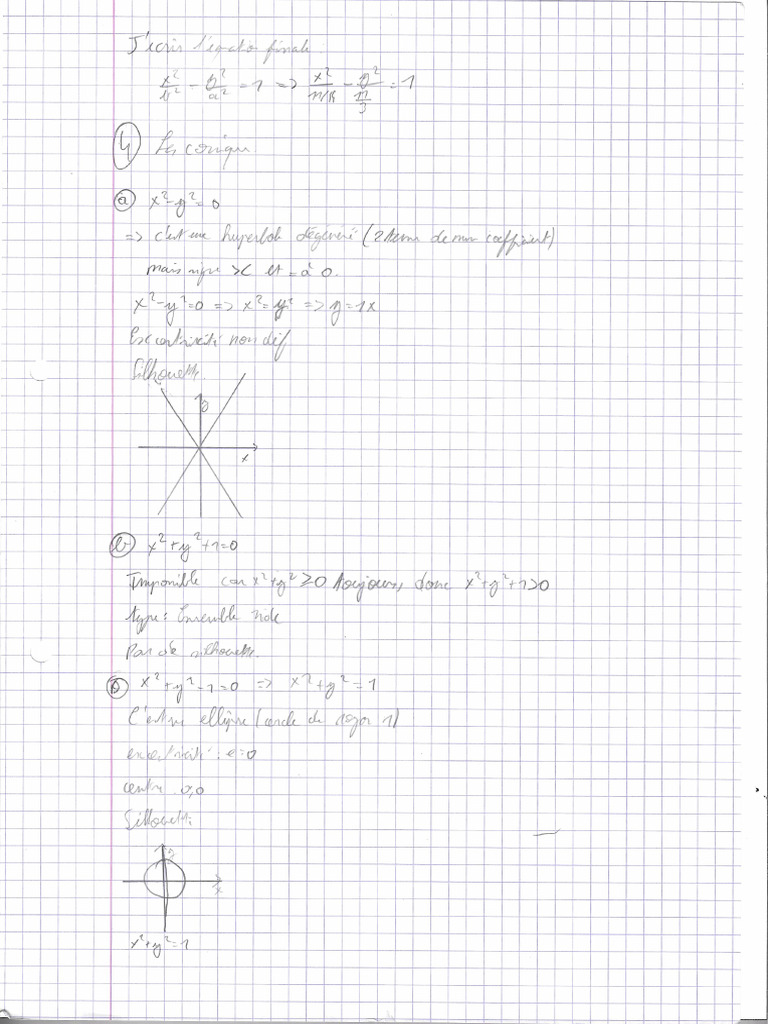 J'écris l'équation finale :
x²/b² - y²/a² = 1 => x²/ - y²/(/3) = 1
4 Les conique.
a x²-y²=0
=> c'est une hyperbole dégénéré (2 termes de même coefficient)
mais signe >< et = à 0.
x²-y²=0 => x²=y² => y=±x
Excentricité non déf
Silhouette.
y
x
b x²+y²+1=0
Impossible car x²+y²≥0 toujours, donc x²+y²+1>0
type : Ensemble vide
Pas de silhouette.
x²+y²-1=0 => x²+y²=1
C'est une ellipse (cercle de rayon 1)
excentricité : e=0
centre 0,0
Silhouette
y
x
x²+y²=1